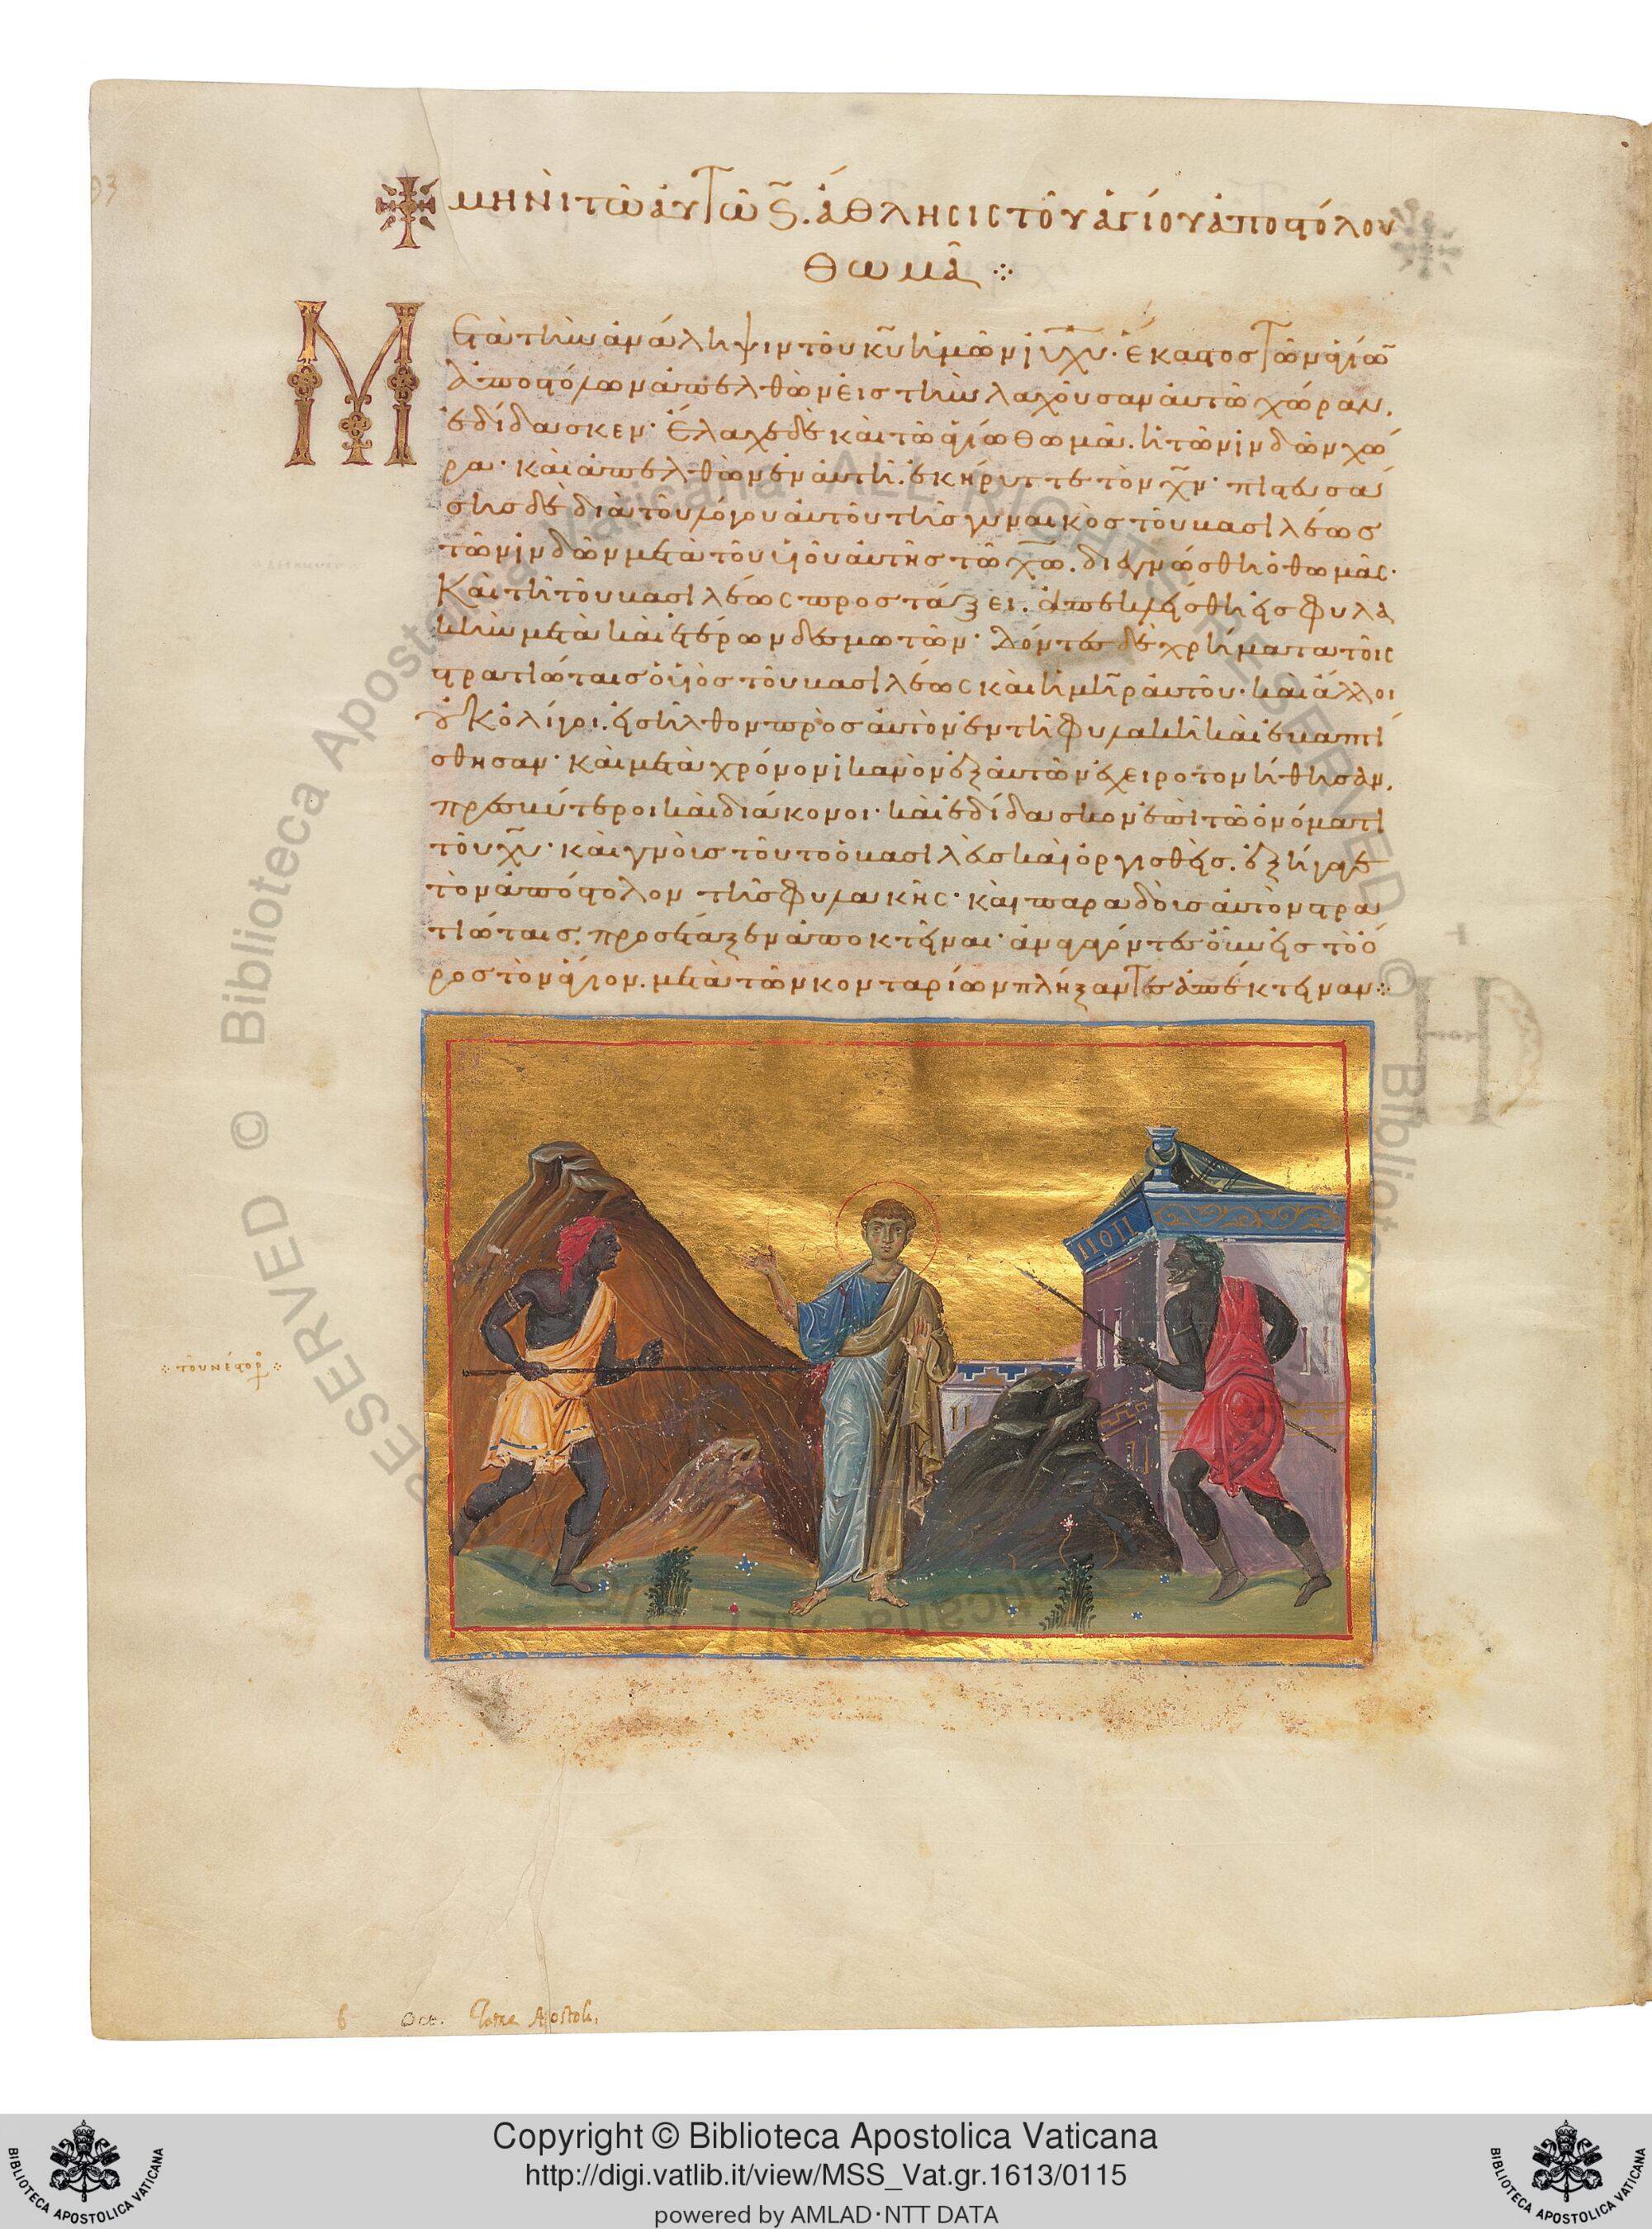 93
μηνὶ τῶ αὐτῶ ς. ἄθλησις τοῦ ἁγίου ἀποστόλου
θωμᾶ
Μετὰ τὴν ἀνάληψιν τοῦ κ̅υ̅ ἡμῶν ἰ̅υ̅ χ̅υ̅. ἕκαστος τῶν ἁγίων
ἀποστόλων ἀπελθὼν εἰς τὴν λαχοῦσαν αὐτῶ χώραν,
ἐδίδασκεν· ἔλαχε δὲ καὶ τῶ ἁγίω θωμᾶ. ἡ τῶν ἰνδῶν χώ
ρα· καὶ ἀπελθὼν ἐν αὐτῆ. ἐκήρυττε τὸν χ̅ν̅· πιστευσά
σης δὲ διὰ τοῦ λόγου αὐτοῦ τῆς γυναικὸς τοῦ βασιλέως
τῶν ἰνδῶν μετὰ τοῦ υἱοῦ αὐτῆς τῶ χ̅ω̅. διεγνώσθη ὁ θωμᾶς·
Καὶ τῆ τοῦ βασιλέως προστάξει. ἀπεκλείσθη εἰς φυλα
κὴν μετὰ καὶ ἑτέρων δεσμωτῶν· δόντες δὲ χρήματα τοῖς
στρατιώταις ὁ υἱὸς τοῦ βασιλέως καὶ ἡ μ̅η̅ρ αὐτοῦ· καὶ ἄλλοι
οὐκ ὀλίγοι. εἰσῆλθον πρὸς αὐτὸν ἐν τῆ φυλακῆ καὶ ἐβαπτί
σθησαν· καὶ μετὰ χρόνον ἱκανὸν ἐξ αὐτῶν ἐχειροτονήθησαν,
πρεσβύτεροι καὶ διάκονοι· καὶ ἐδίδασκον ἐπὶ τῶ ὀνόματι
τοῦ χ̅υ̅· καὶ γνοὺς τοῦτο ὁ βασιλεὺς καὶ ὀργισθεὶς. ἐξήγαγε
τὸν ἀπόστολον τῆς φυλακῆς· καὶ παραδοὺς αὐτὸν στρα
τιώταις, προσέταξεν ἀποκτεῖναι· ἀναγαγόντες οὖν εἰς τὸ ὄ
ρος τὸν ἅγιον. μετὰ τῶν κονταρίων πλήξαντες ἀπέκτειναν
τοῦ νέστορ
6 Oct. Tomæ Apostoli,
Copyright © Biblioteca Apostolica Vaticana
http://digi.vatlib.it/view/MSS_Vat.gr.1613/0115
powered by AMLAD·NTT DATA
BIBLIOTECA APOSTOLICA VATICANA
BIBLIOTECA APOSTOLICA VATICANA
© Biblioteca Apostolica Vaticana ALL RIGHTS RESERVED